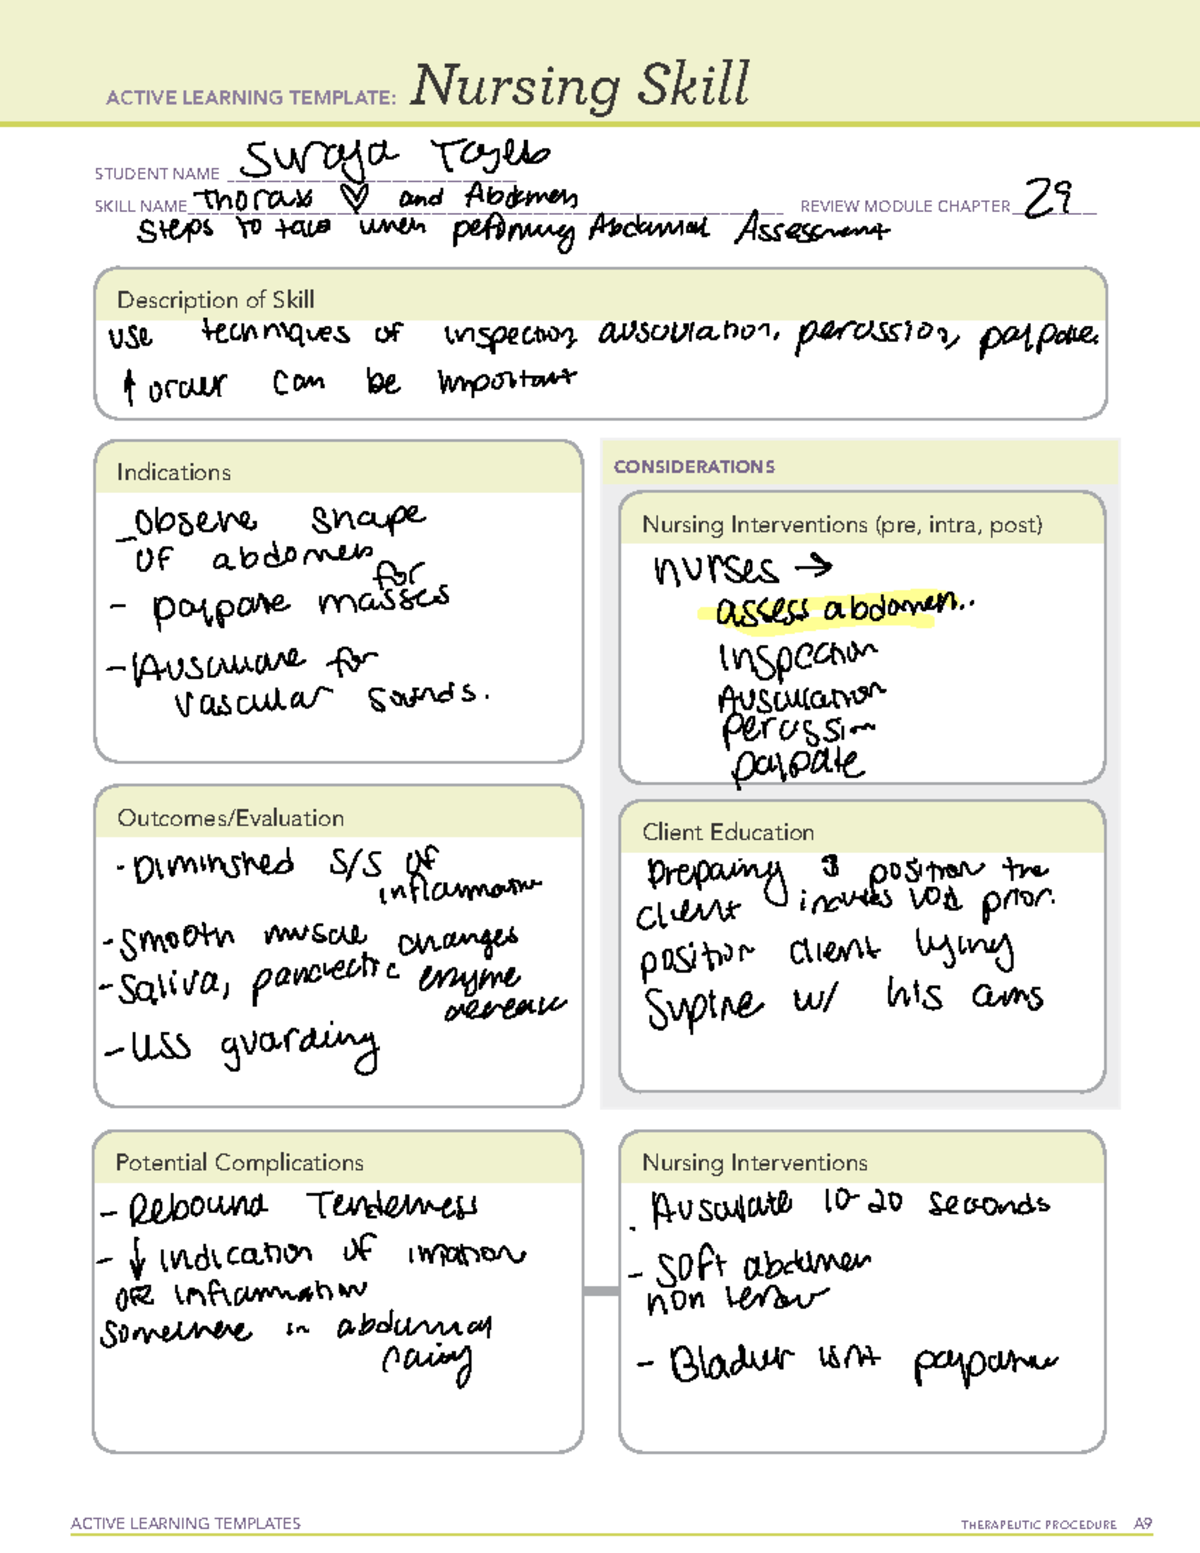 ACTIVE LEARNING TEMPLATE: Nursing Skill
STUDENT NAME Suraja
SKILL NAME Thorax ♡ and Abdomen REVIEW MODULE CHAPTER 29
Steps to take when peforming Abdominal Assessment
Description of Skill
use techniques of inspection, auscultation, percussion, palpate.
↑ order can be important
Indications
- Observe shape
of abdomen
- palpate for masses
- Auscultate for
vascular sounds.
CONSIDERATIONS
Nursing Interventions (pre, intra, post)
nurses →
assess abdomen..
Inspection
Auscultation
percussion
palpate
Outcomes/Evaluation
- Diminished S/S of
inflammation
- Smooth muscle changes
- Saliva, pancreatic enzyme
decrease
- less guarding
Client Education
Prepairing & position the
client includes prior.
position client lying
Supine w/ his arms
Potential Complications
- Rebound Tenderness
- ↓ indication of irritation
OR inflammation
Somewhere in abdominal
cavity
Nursing Interventions
. Auscultate 10-20 seconds
- Soft abdomen
non tender
- Bladder isnt palpable
ACTIVE LEARNING TEMPLATES THERAPEUTIC PROCEDURE A9